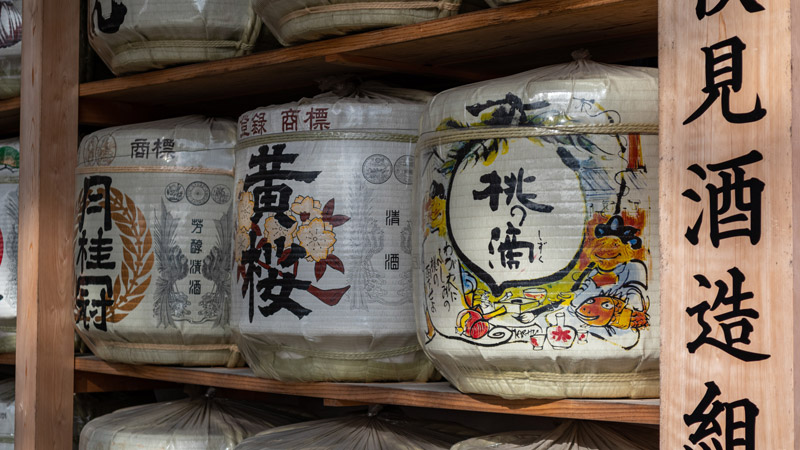 商標
月桂冠
芳醸清酒
登録 商標
黄桜
清酒
桃の滴
しずく
見酒造組